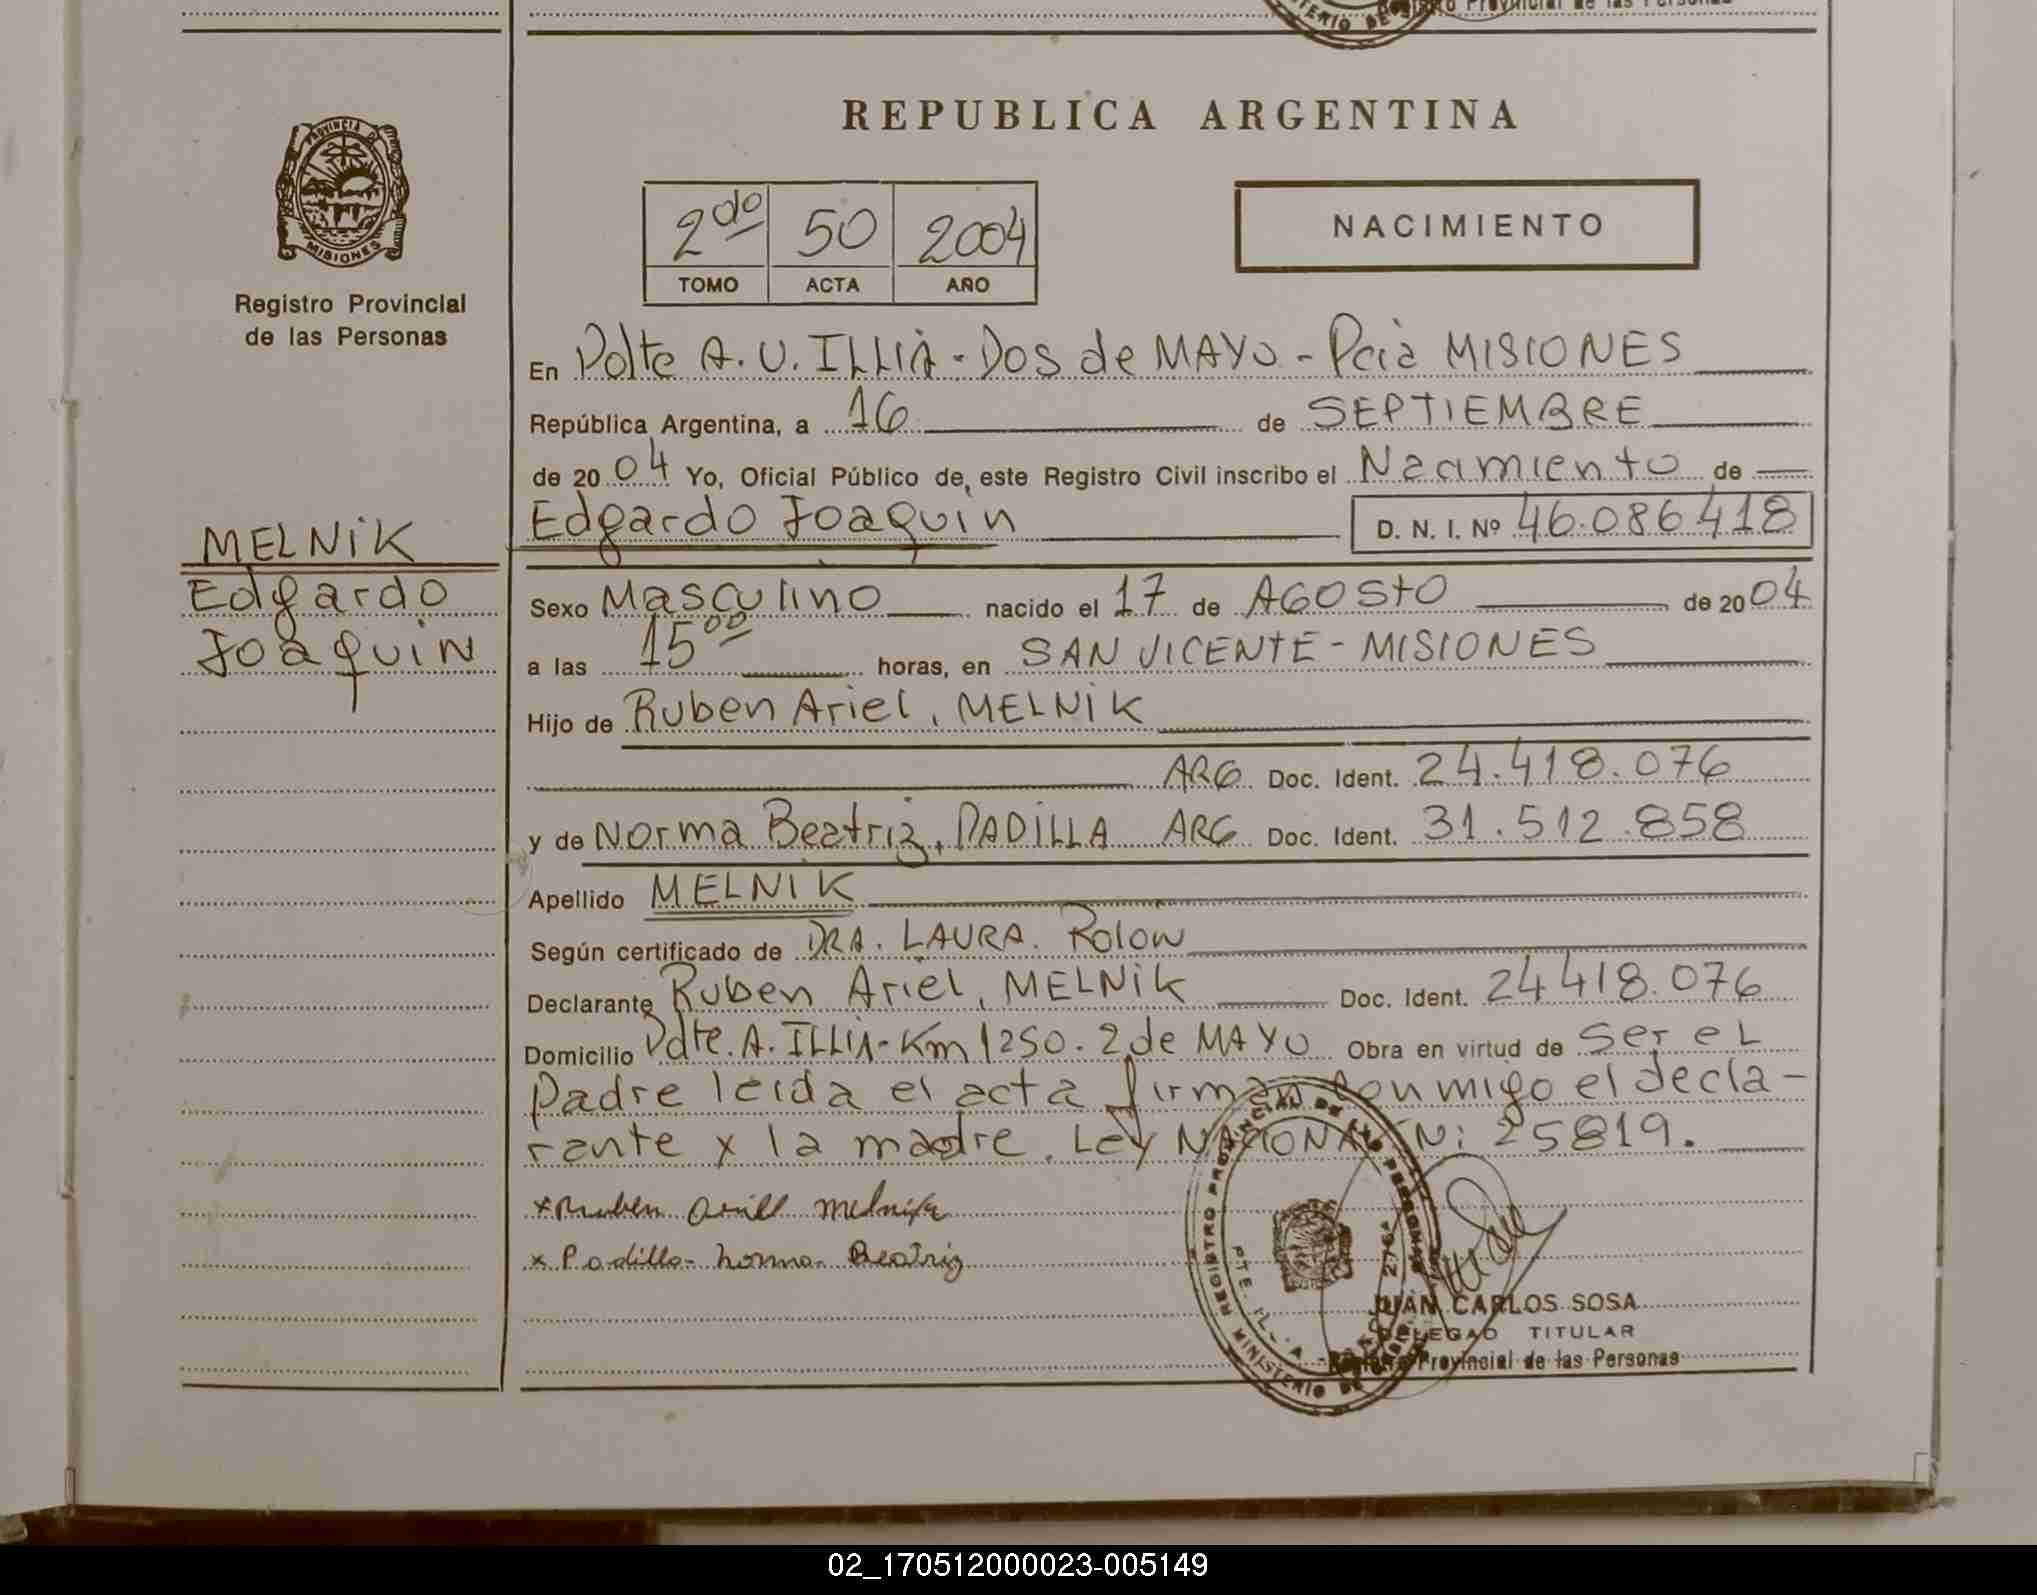 Registro Provincial de las Personas
MINISTERIO DE
REPUBLICA ARGENTINA
PROVINCIA DE
MISIONES
Registro Provincial
de las Personas
2do 50 2004
TOMO ACTA AÑO
NACIMIENTO
En Pdte A.U. ILLIA - Dos de MAYO - Pcia MISIONES
República Argentina, a 16 de SEPTIEMBRE
de 2004 Yo, Oficial Público de este Registro Civil inscribo el Nacimiento de
Edgardo Joaquin D. N. I. Nº 46.086.418
MELNIK
Edgardo
Joaquin
Sexo Masculino nacido el 17 de AGOSTO de 2004
a las 15 00 horas, en SAN VICENTE - MISIONES
Hijo de Ruben Ariel, MELNIK
ARG Doc. Ident. 24.418.076
y de Norma Beatriz, PADILLA ARG Doc. Ident. 31.512.858
Apellido MELNIK
Según certificado de DRA. LAURA. Rolon
Declarante Ruben Ariel, MELNIK Doc. Ident. 24 418.076
Domicilio Pdte. A. ILLIA - Km 1250. 2 de MAYO Obra en virtud de ser el
padre leida el acta firman conmigo el decla-
rante x la madre. Ley NACIONAL N: 25819.
x Ruben Ariel Melnik
x Padilla - Norma - Beatriz
REGISTRO PROVINCIAL DE LAS PERSONAS
MINISTERIO DE
JUAN CARLOS SOSA
DELEGADO TITULAR
Registro Provincial de las Personas
02_170512000023-005149